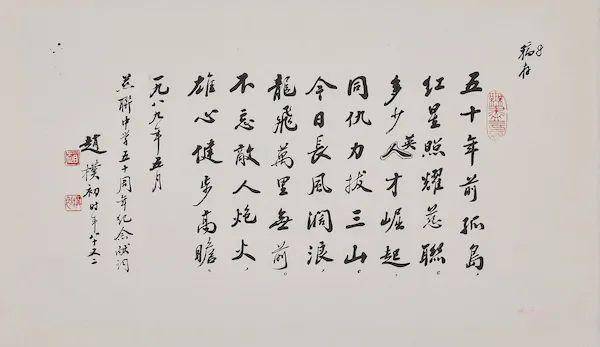 稿存
五十年前孤島，
紅星照耀慈聯。
多少英才崛起，
同仇力拔三山。
今日長風濶浪，
龍飛萬里無前。
不忘敵人炮火，
雄心健步高瞻。
一九八九年五月
慈聯中学五十周年纪念赋词
趙樸初时年八十又二